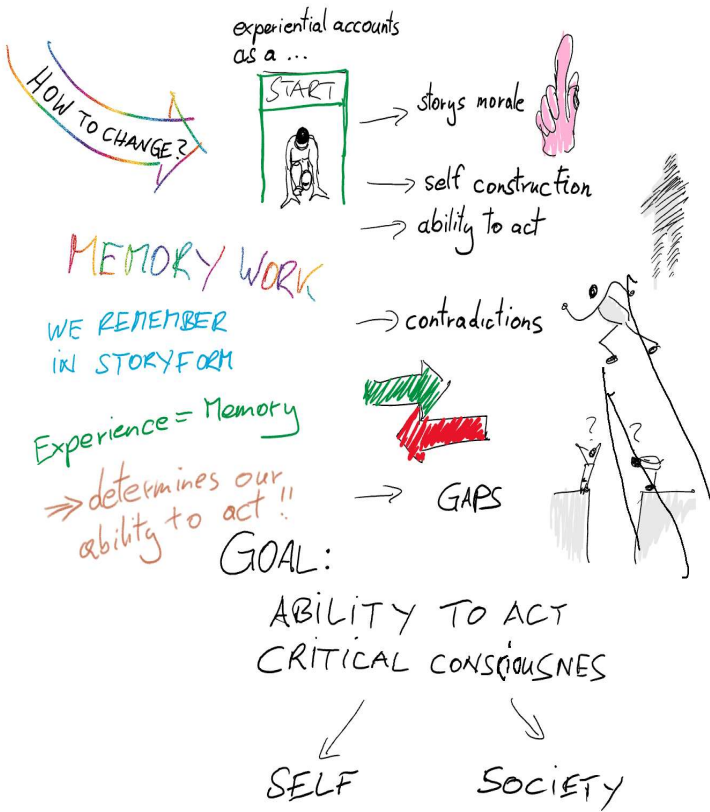 experiential accounts
as a ...
HOW TO CHANGE?
START
→ storys morale
→ self construction
→ ability to act
MEMORY WORK
WE REMEMBER
IN STORYFORM
→ contradictions
Experience = Memory
⇒ determines our
ability to act !!
→ GAPS
? ?
GOAL:
ABILITY TO ACT
CRITICAL CONSCIOUSNES
SELF SOCIETY